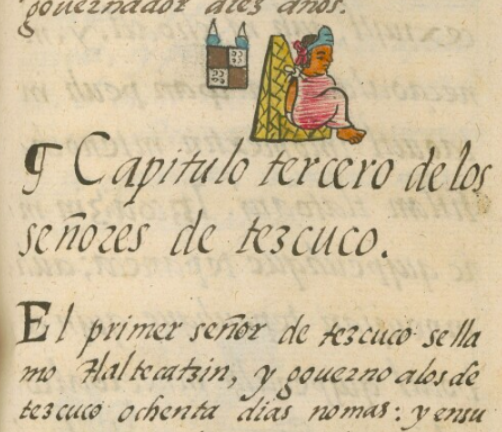 gouernador diez años.
¶ Capitulo tercero de los
señores de tezcuco.
El primer señor de tezcuco sella
mo Tlaltecatzin, y gouerno alos de
tezcuco ochenta dias nomas: y ensu